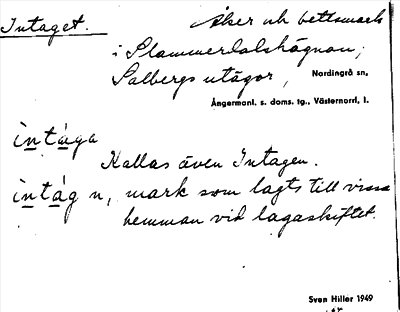 Intaget. Åker och betesmark
i Slammerdalshägnan,
Salbergs utägor, Nordingrå sn,
Ångermanl. s. doms. tg., Västernorrl. l.
intåga
Kallas även Intagen.
intåg n, mark som lagts till vissa
hemman vid lagaskiftet.
Sven Hiller 1949